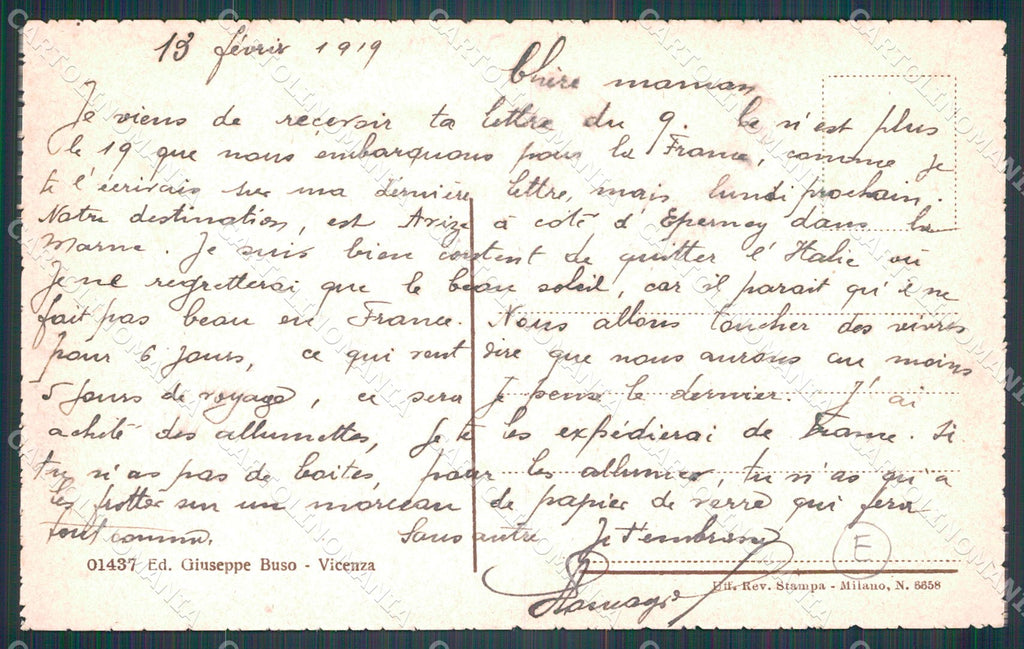 13 févrir 1919
Chère maman
Je viens de recevoir ta lettre du 9. Ce n'est plus
le 19 que nous embarquons pour la France, comme je
te l'écrivais sur ma dernière lettre, mais lundi prochain.
Notre destination, est Avize à coté d'Epernay dans la
Marne. Je suis bien content de quitter l'Italie où
Je ne regretterai que le beau soleil, car il parait qu'il ne
fait pas beau en France. Nous allons toucher des vivres
pour 6 jours, ce qui veut dire que nous aurons au moins
5 jours de voyage, ce sera Je pense le dernier. J'ai
acheté des allumettes, Je te les expédierai de France. Si
tu n'as pas de boites, pour les allumer, tu n'as qu'à
les frotter sur un morceau de papier de verre qui fera
tout comme. Sans autre Je t'embrasse
01437 Ed. Giuseppe Buso - Vicenza
E
Uff. Rev. Stampa - Milano, N. 6658
CARTOLINOMANIA